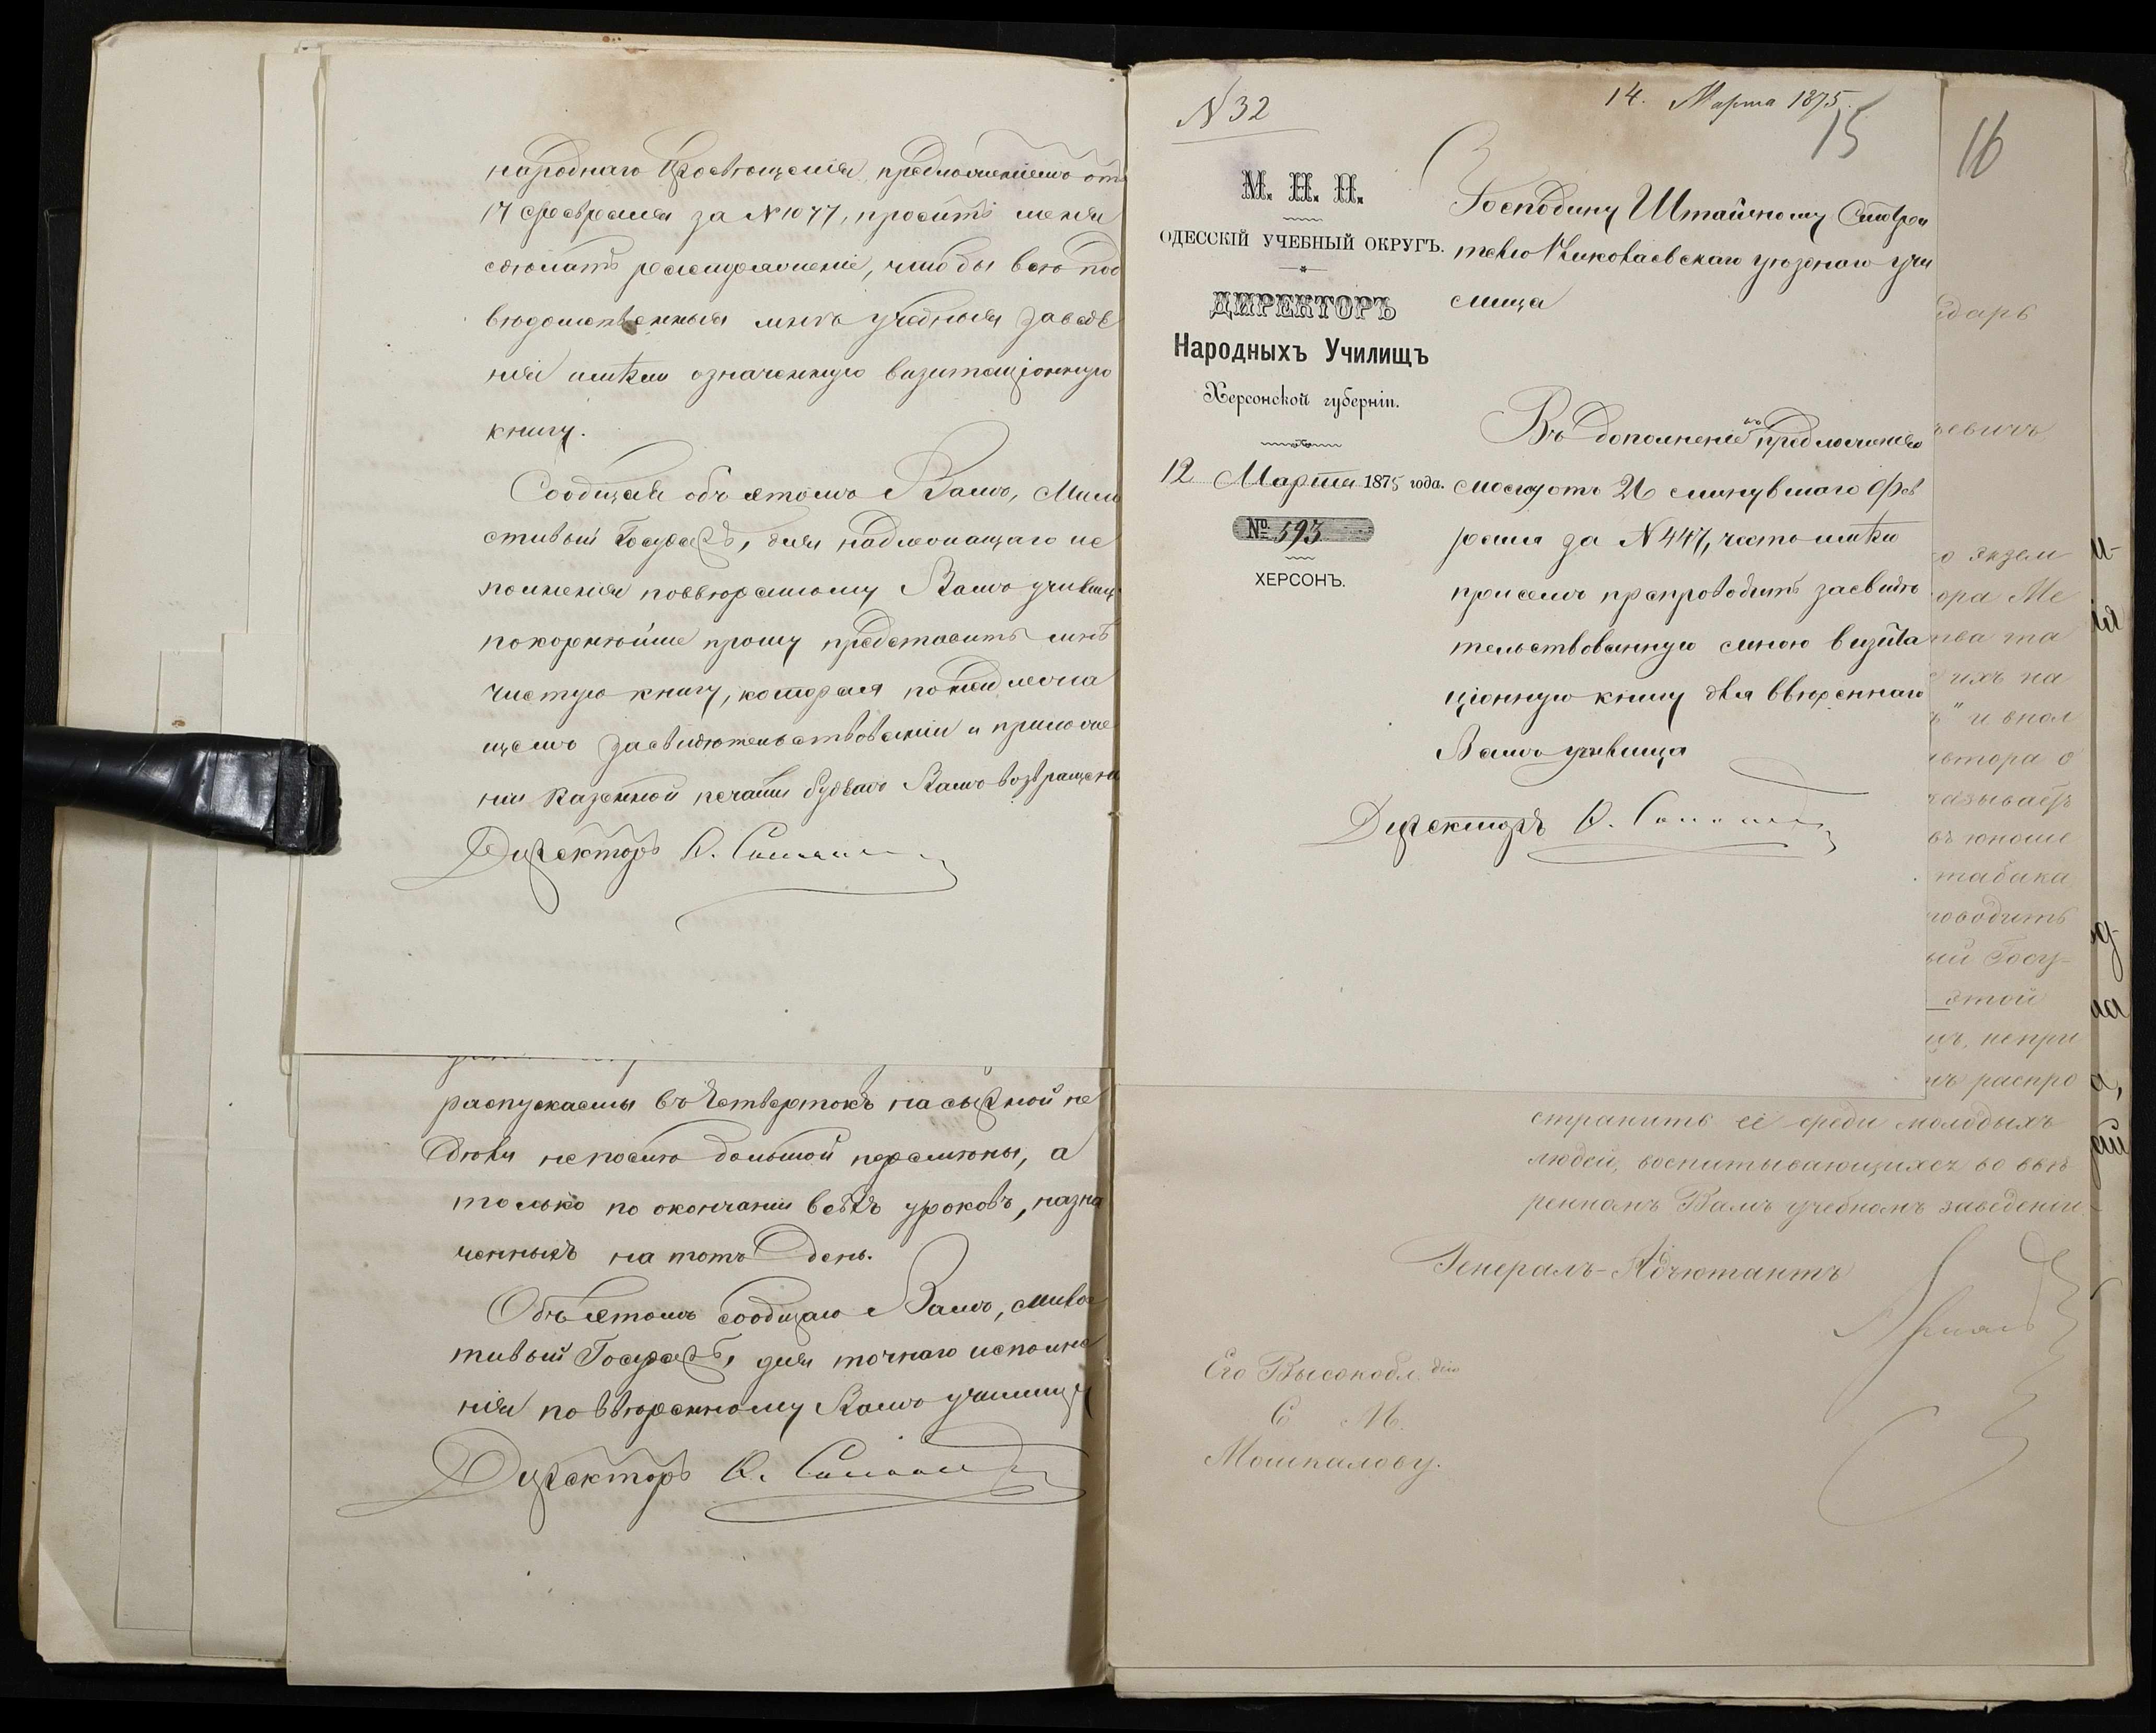 народнаго Просвѣщенія, предложеніемъ отъ
17 февраля за №1077, проситъ меня
сдѣлать распоряженіе, чтобы всѣ под
вѣдомственныя мнѣ учебныя заведе
нія имѣли означенную визитаціонную
книгу.
Сообщая объ этомъ Вамъ, Мило
стивый Государь, для надлежащаго ис
полненія по ввѣренному Вамъ училищу
покорнѣйше прошу представить мнѣ
чистую книгу, которая по надлежа
щемъ засвидѣтельствованіи и приложе
ніи казенной печати будетъ Вамъ возвращена
Директоръ
распускаемы въ четвертокъ на сырной не
дѣли не послѣ большой перемѣны, а
только по окончаніи всѣхъ уроковъ, назна
ченныхъ на тотъ день.
Объ этомъ сообщаю Вамъ, милос
тивый Государь, для точнаго исполне
нія по ввѣренному Вамъ училищу
Директоръ
N 32
14. Марта 1875.
15
М. Н. П.
ОДЕССКІЙ УЧЕБНЫЙ ОКРУГЪ.
ДИРЕКТОРЪ
Народныхъ Училищъ
Херсонской губерніи.
12 Марта 1875 года.
№ 593
ХЕРСОНЪ.
Господину Штатному Смотри
телю Николаевскаго уѣзднаго учи
лища
Въ дополненіе къ предложенію
моему отъ 26 минувшаго Фев
раля за N 447, честь имѣю
при семъ препроводить засвидѣ
тельствованную мною визита
ціонную книгу для ввѣреннаго
Вамъ училища
Директоръ
16
сдарь
ьевичъ
о экзем
ора Ме
тва та
ихъ на
ъ" и впол
втора о
казываетъ
въ юноше
табака
поводить
ый Госу=
этой
непри
распро
странить её среди молодыхъ
людей, воспитывающихся во ввѣ
ренномъ Вамъ учебномъ заведеніи.
Генералъ-Адъютантъ
Его Высокобл. дію
С М.
Мошкалову.